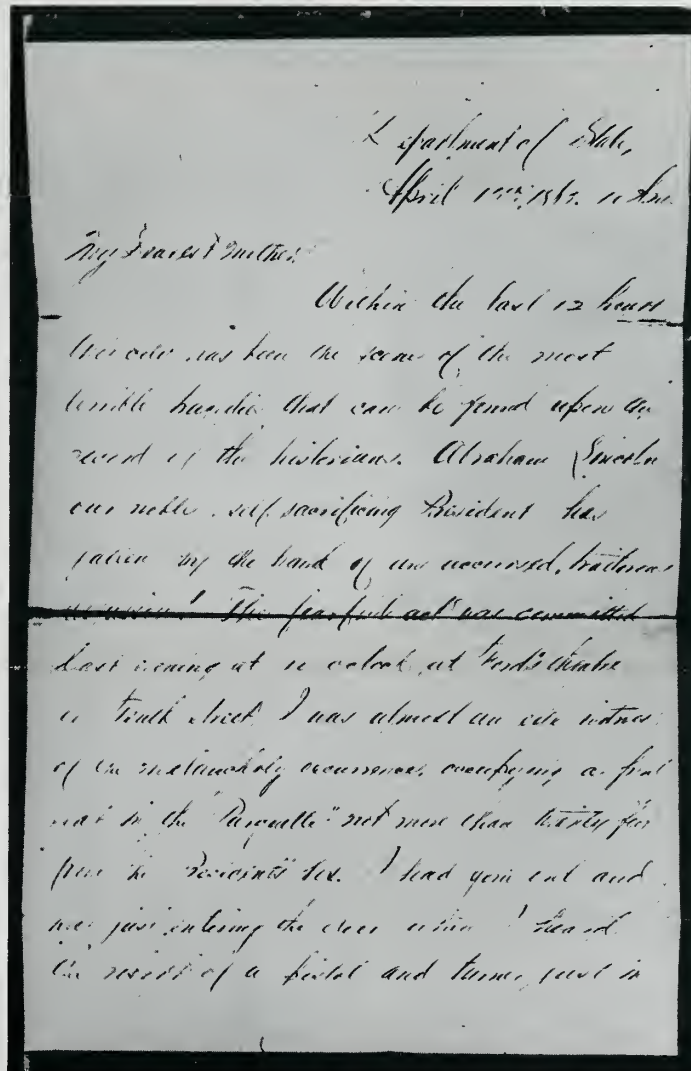 Department of State,
April 15th, 1865. 10 A.M.
My Dearest Mother.
Within the last 12 hours
this city has been the scene of the most
terrible tragedy that can be found upon the
record of the historians. Abraham Lincoln
our noble, self sacrificing President has
fallen by the hand of an accursed, traitorous
assassin! The fearful act was committed
last evening at 10 o'clock, at Ford's theatre
on Tenth street. I was almost an eye witness
of the melancholy occurrence, occupying a front
seat in the "Parquette" not more than twenty feet
from the President's box. I had gone out and
was just entering the door when I heard
the report of a pistol and turned just in